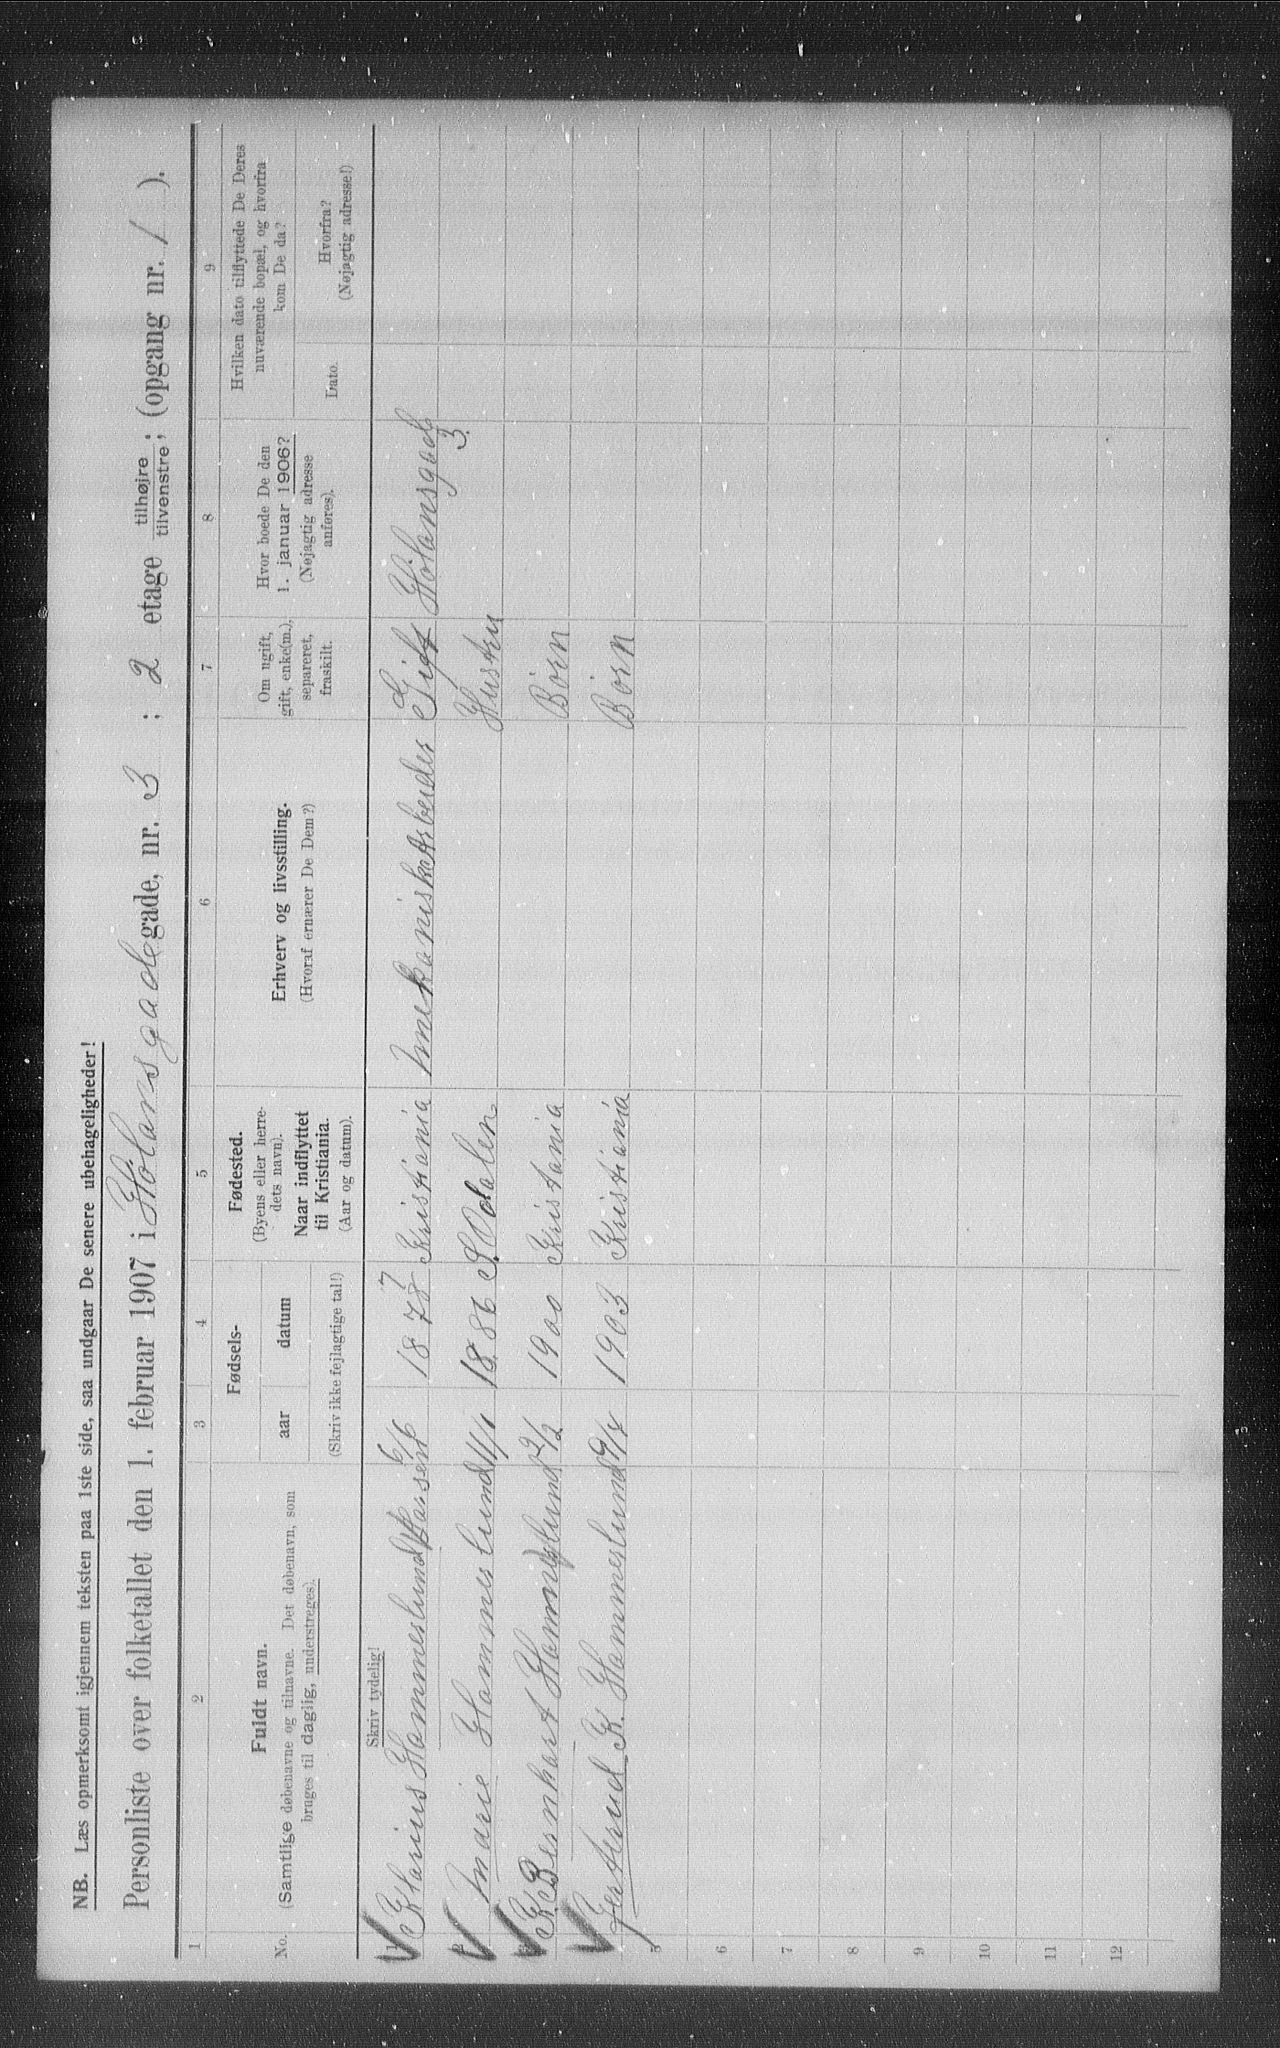 NB. Læs opmerksomt igjennem teksten paa 1ste side, saa undgaar De senere ubehageligheder!
Personliste over folketallet den 1. februar 1907 i Hölansgade gade, nr. 3 ; 2 etage tilhøjre ; tilvenstre ; (opgang nr. 1 ).
1 2 3 4 5 6 7 8 9
No.
Fuldt navn.
(Samtlige døbenavne og tilnavne. Det døbenavn, som
bruges til daglig, understreges).
Fødsels-
aar datum
(Skriv ikke fejlagtige tal!)
Fødested.
(Byens eller herre-
dets navn).
Naar indflyttet
til Kristiania.
(Aar og datum).
Erhverv og livsstilling.
(Hvoraf ernærer De Dem?)
Om ugift,
gift, enke(m.),
separeret,
fraskilt.
Hvor boede De den
1. januar 1906?
(Nøjagtig adresse
anføres).
Hvilken dato tilflyttede De Deres
nuværende bopæl, og hvorfra
kom De da?
Dato.
Hvorfra?
(Nøjagtig adresse!)
Skriv tydelig!
1 Klarius Hammeslund 6/6 1878 7 Kristiania mekaniskArbeider Gift Hölansgade 3.
2 Marie Hammeslund 11/1 1886 S. Odalen Hustru
3 K Bernhart Hammeslund 2/2 1900 Kristania Börn
Gertrud K. Hammeslund 9/8 1903 Kristiania Börn
5
6
7
8
9
10
11
12